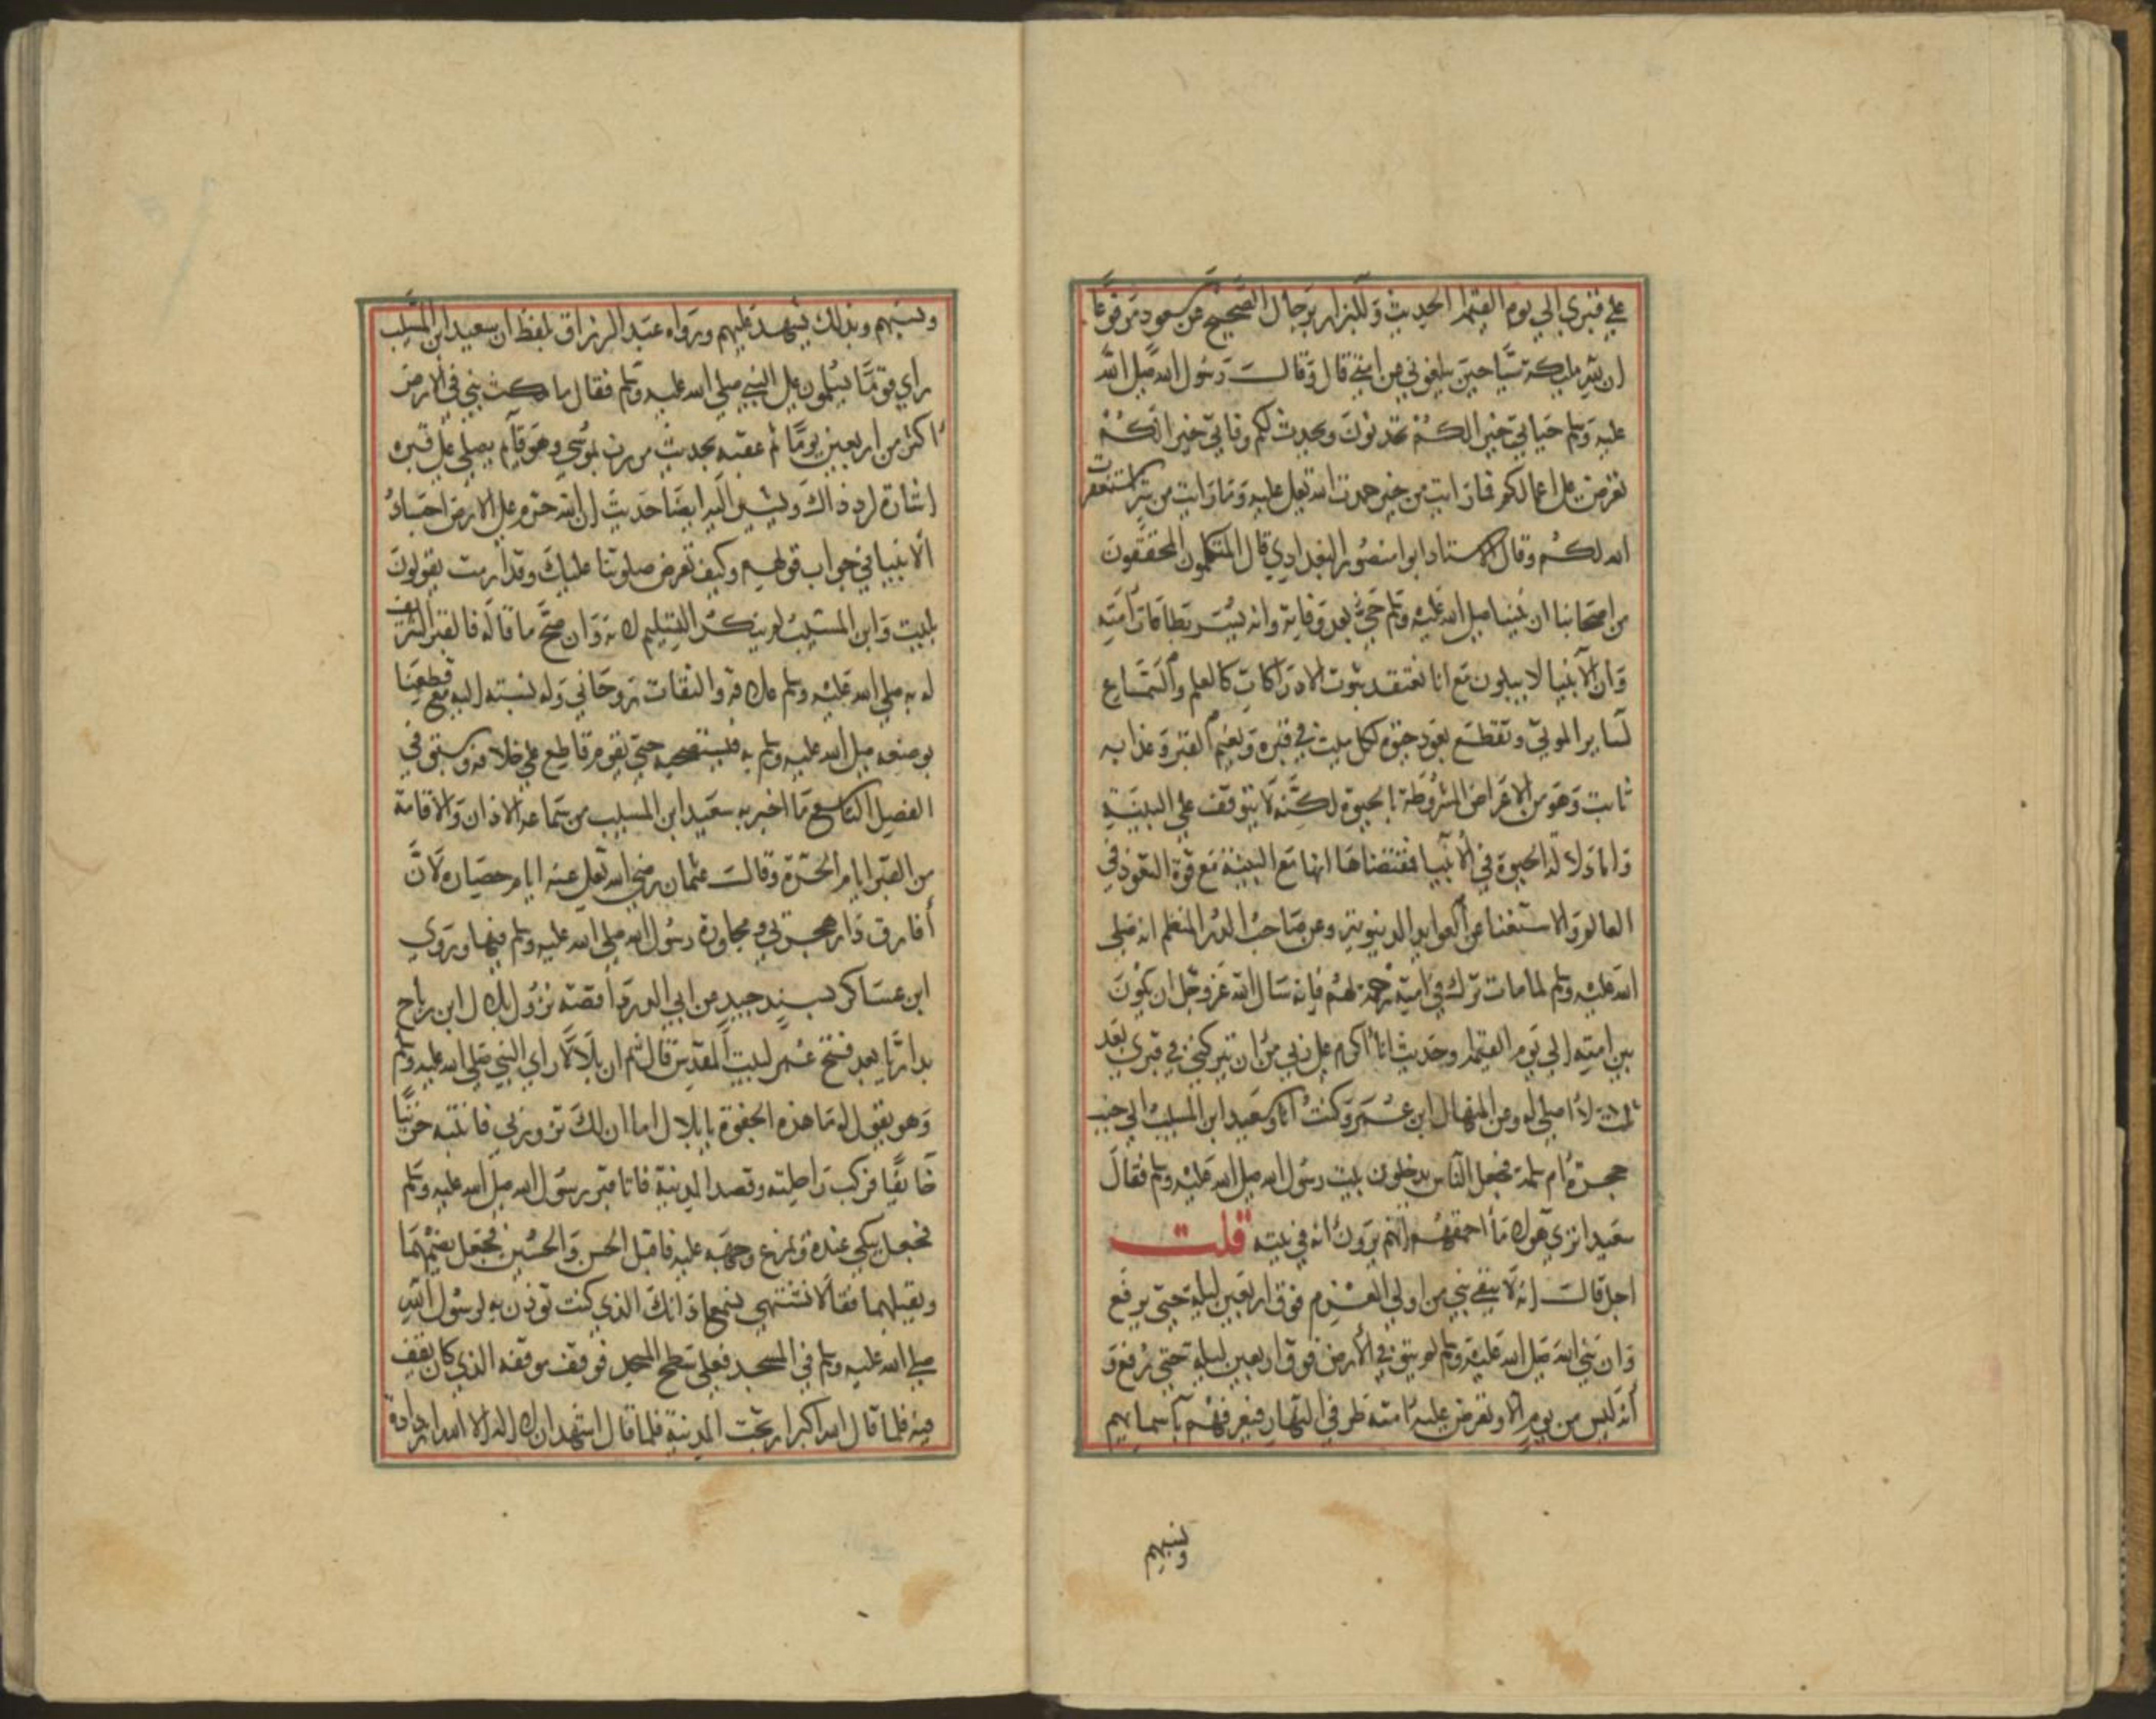 علي قبري الي يوم القيمة الحديث وللبزار برجال الصحيح عن مسعود مرفوعا
ان لله ملئكة سياحين يبلغوني من امتي قال وقالت رسول الله صلي الله
عليه وسلم حياتي خير الكم تحدثون ويحدث لكم وفاتي خير الكم
تعرض علي اعمالكم فما رايت من خير حمدت الله تعلي عليه وما رايت من شر استغفرت
الله لكم وقال الاستاد ابوا منصور البغدادي قال المتكلمون المحققون
من اصحابنا ان نبينا صلي الله عليه وسلم حي بعد وفاته وانه يسر بطاعات امته
وان الانبيا لا يبلون مع انا نعتقد ثبوت الادراكات كالعلم والسماع
لساير الموتي ونقطع بعود حيوة لكل ميت في قبره ونعيم القبر وعذابه
ثابت وهو من الاعراض المشروطة بالحيوة لكنه لا يتوقف علي البنية
واما دلالة الحيوة في الانبيا فمقتضاها انها مع البنية مع قوة النفوذ في
العالم والاستغنا عن العوايد الدنيوية وعن صاحب الدر المنظم انه صلي
الله عليه وسلم لما مات ترك في امته رحمة لهم فانه سال الله عز وجل ان يكون
بين امته الي يوم القيمة وحديث انا اكرم علي ربي من ان يتركني في قبري بعد
ثلث لا اصل له وعن المنهال ابن عمر وكنت انا وسعيد ابن المسيب الي جنب
حجرة ام سلمة فجعل الناس يدخلون بيت رسول الله صلي الله عليه وسلم فقال
سعيد اتري هولاء ما احمقهم انهم يرون انه في بيته قلت
اجل قالت انه لا يبقي نبي من اولي العزم فوق اربعين ليلة حتي يرفع
وان نبي الله صلي الله عليه وسلم لم يبق في الارض فوق اربعين ليلة حتي رفع و
انه ليس من يوم الا وتعرض عليه امته طرفي النهار فيعرفهم باسمايهم
ونسبهم
ونسبهم وبذلك يشهد عليهم ورواه عبد الرزاق بلفظ ان سعيد ابن المسيب
راي قوما يسلمون علي النبي صلي الله عليه وسلم فقال ما مكث نبي في الارض
اكثر من اربعين يوما ثم عقبه بحديث مررت بموسي وهو قايم يصلي علي قبره
اشارة لرد ذاك ويشير اليه ايضا حديث ان الله حرم علي الارض اجساد
الانبيا في جواب قولهم وكيف تعرض صلوتنا عليك وقد ارمت يقولون
بليت وابن المسيب لم ينكر التسليم لانه وان صح ما قاله فالقبر الشريف
له به صلي الله عليه وسلم علاقة والتفات روحاني وله نسبته اليه مع قطعنا
بوضعه صلي الله عليه وسلم به فنستصحبه حتي يقوم قاطع علي خلافه وسبق في
الفصل التاسع ما اخبر به سعيد ابن المسيب من سماعه الاذان والاقامة
من القبر ايام الحرة وقالت عثمان رضي الله تعلي عنه ايام حصاره لان
أفارق دار هجرتي ومجاورة رسول الله صلي الله عليه وسلم فيها وروي
ابن عساكر بسند جيد عن ابي الدرداء قصته نزول بلال ابن رباح
بداريا بعد فتح عمر لبيت المقدس قال ثم ان بلالا راي النبي صلي الله عليه وسلم
وهو يقول له ما هذه الجفوة يا بلال اما ان لك تزورني فانتبه حزنيا
خايفا فركب راحلته وقصد المدينة فاتا قبر رسول الله صلي الله عليه وسلم
فجعل يبكي عنده ويمرغ وجهه عليه فاقبل الحسن والحسين فجعل يضمهما
ويقبلهما فقالا نشتهي نسمع اذانك الذي كنت توذن به لرسول الله
صلي الله عليه وسلم في المسجد فعلي سطح المسجد فوقف موقفه الذي كان يقف
فيه فلما قال الله اكبر ارتجت المدينة فلما قال اشهد ان لا اله الا الله ازدادة